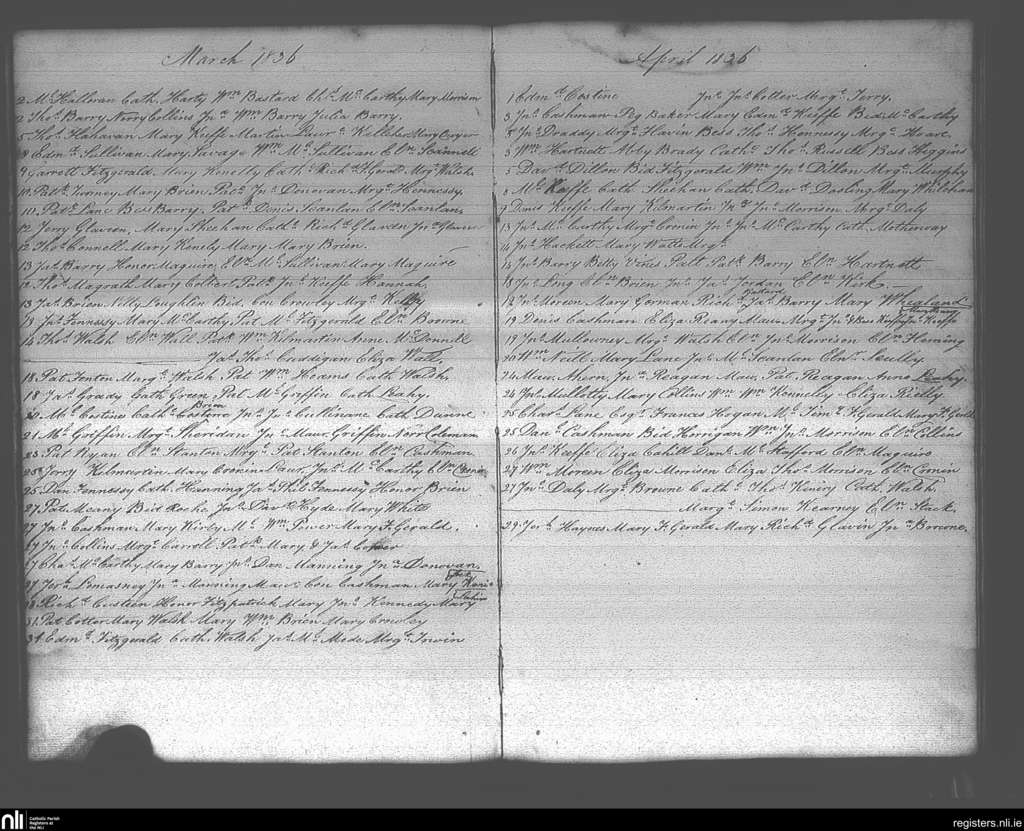 March 1836
2 Ml. Halloran Cath. Harty Wm Bastard Chs. McCarthy Mary Morrison
2 Thos. Barry Norry Collins Jno Wm Barry Julia Barry.
5 Thos. Hanavan Mary Keeffe Martin Laur. Kelleher Mary
8 Edmd. Sullivan Mary Savage Wm Ml. Sullivan Elln. Scannell
9 Garrett Fitzgerald Mary Kenelly Cath. Richd. FGerald Mrgt. Walsh
10 Patk. Torney Mary Brien Patk. Jno. Donovan Mrgt. Hennessy
10 Patk. Lane Bess Barry Pat Denis Scanlan Elln. Scanlan
12 Jerry Glavin Mary Sheehan Cath. Richd. Glaveen Jno Glavin
12 Thos. Connell Mary Kenely Mary Mary Brien.
13 Jas. Barry Honor Maguire Ellen Ml. Sullivan Mary Maguire
Thos. Magrath Mary Colbert Patk. Jno. Keeffe Hannah.
13 Jas. Brien Nelly Loughlin Bid. Con Crowley Mrgt. Kelly
Jno. Fennessy Mary McCarthy Pat Ml. Fitzgerald Elln. Browne
Thos. Walsh Elln. Wall Patk. Wm Kilmartin Anne McDonnell
Jas. Thos. Cuddigan Eliza Wall
18 Pat Fenton Margt. Walsh Pat Wm Cath Walsh.
18 Jas. Grady Cath Green Pat Ml. Griffin Cath Leahy.
Brien
Ml. Costine Cath. Jno. Jno. Cullinane Cath Dunne
21 Ml. Griffin Mrgt. Sheridan Jno. Maur. Griffin Norr Coleman
23 Pat Ryan Elln. Stanton Mrgt. Pat Stanton Elln. Cashman.
25 Jerry Kilmartin Mary Cronin Jno. McCarthy Elln.
25 Dan Fennessy Cath. Jas. Phil Fennessy Honor Brien
27 Pat Meany Bid Roche Jno. Davd. Hyde Mary White
27 Jno. Cashman Mary Kirby Ml. Wm Power Mary FGerald.
27 Jno. Collins Mrgt. Carroll Patk. Mary & Jas.
27 Chas. McCarthy Mary Barry Jno. Dan Manning Jno Donovan.
27 Jno Manning Maur. Con Cashman Mary
Richd. Costeen Honor Fitzpatrick Mary Jno. Kennedy Mary
31 Pat Cotter Mary Walsh Mary Wm Brien Mary Crowley
31 Edmd. Fitzgerald Cath. Walsh Jas. Ml. Mede Mrgt. Irwin
April 1836
1 Edmd. Costine Jno. Jno. Cotter Mrgt. Terry.
3 Jno. Cashman Peg Baker Mary Edmd. Keeffe Bid McCarthy
Jno. Draddy Mrgt. Flavin Bess Thos. Hennessy Mrgt. Hoare.
5 Wm. Hartnett Abby Brady Cath. Thos. Russell Bess Higgins
5 Davd. Dillon Bid Fitzgerald Wm Jno. Dillon Mrgt. Murphy
8 Ml. Keeffe Cath Sheehan Cath. Davd. Dooling Mary Whelhan
9 Denis Keeffe Mary Kilmartin Jno. Morrison Mrgt. Daly
13 Jno. McCarthy Mrgt. Cronin Jno. Jno. McCarthy Cath. Motherway
14 Jno. Hackett Mary Watts Mrgt.
14 Jno. Barry Betsy Vines Patt Patk. Barry Elln. Hartnett
18 Jas. Long Elln. Brien Jno. Jas. Jordan Elln. Kirk.
18 Jno. Moreen Mary Gorman Richd. Jas. Barry Mary
19 Denis Cashman Eliza Reany Maur. Mrgt. Jno. & Bess Keeffe Jno. Keeffe
19 Jno. Mullowney Mrgt. Walsh Elln. Jno. Morrison Elln. Fleming
20 Wm. Neill Mary Lane Jno. Ml. Scanlan
24 Maur. Ahern Jno Reagan Maur. Pat Reagan Anne Leahy.
24 Jno. Mellotty Mary Collins Wm Wm Kennelly Eliza Rielly
25 Chas. Lane Esqr. Frances Hogan Ml. Timy. FGerald Mary FGerald
25 Danl. Cashman Bid Horrigan Wm Jno. Morrison Elln. Collins
26 Jno. Keeffe Eliza Cahill Danl. Ml. Stafford Elln. Maguire
27 Wm. Moreen Eliza Morrison Eliza Thos. Morrison Elln. Cronin
27 Jno. Daly Mrgt. Browne Cath. Thos. Kiniry Cath. Walsh.
Margt. Simon Kearney Elln. Stack.
29 Haynes Mary FGerald Mary Richd. Glavin Jno. Browne.
nli
Catholic Parish
Registers at
the NLI
registers.nli.ie